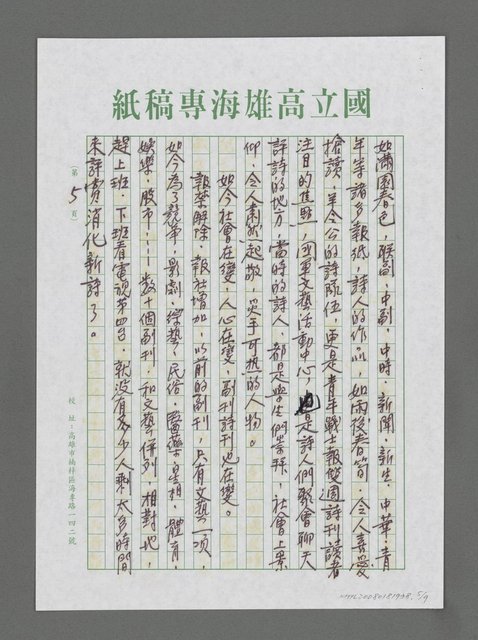 國立高雄海專稿紙
如滿園春色,聯副、中副、中時、新聞、新生、中華、青
年等諸多報紙,詩人的作品,如雨後春筍,令人喜愛
搶讀,羊令公的詩隊伍,更是青年戰士報雙週詩刊讀者
注目的焦點,國軍文藝活動中心,也是詩人們聚會聊天
評詩的地方,當時的詩人,都是學生們崇拜,社會上景
仰,令人肅然起敬,炙手可熱的人物。
如今社會在變,人心在變,副刊詩刊也在變。
報禁解除,報社增加,以前的副刊,只有文藝一項,
如今為了競爭,影劇、綜藝、民俗、醫藥、星相、體育、
娛樂、股市……數十個副刊,和文藝併列,相對地,
趕上班,下班看電視第四台,就沒有多少人剩太多時間
來評賞消化新詩了。
(第5頁)
校址:高雄市楠梓區海專路一四二號
NMTL20080181998. 5/9